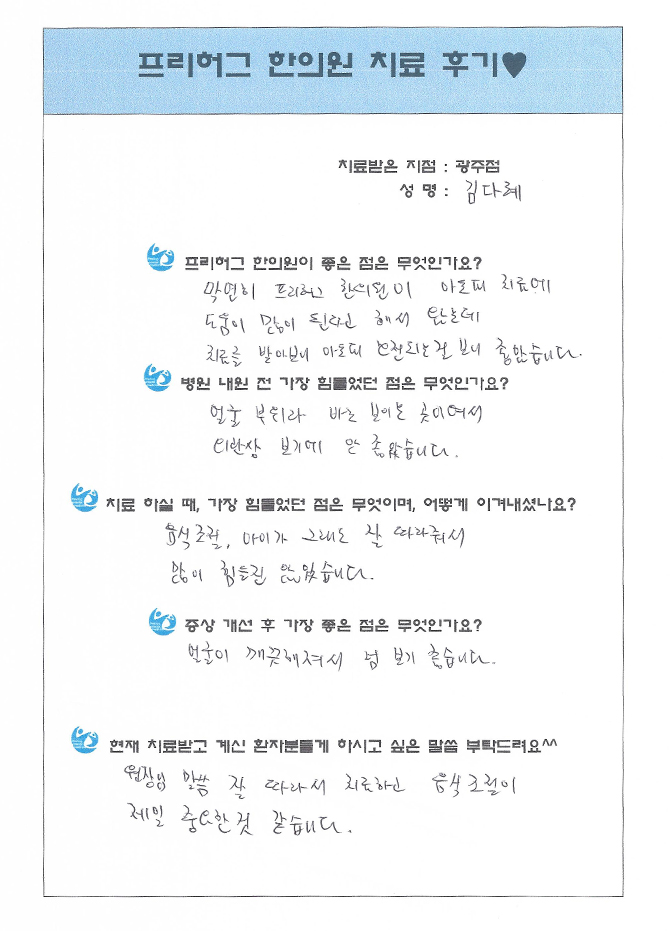 프리허그 한의원 치료 후기♥
치료받은 지점 : 광주점
성 명 : 김다례
프리허그 한의원이 좋은 점은 무엇인가요?
막연히 프리허그 한의원이 아토피 치료에
도움이 많이 된다고 해서 왔는데
치료를 받아보니 아토피 호전되는걸 보니 좋았습니다.
병원 내원 전 가장 힘들었던 점은 무엇인가요?
얼굴 부위라 바로 보이는 곳이여서
미관상 보기에 안 좋았습니다.
치료 하실 때, 가장 힘들었던 점은 무엇이며, 어떻게 이겨내셨나요?
음식조절, 아이가 그래도 잘 따라줘서
많이 힘들진 않았습니다.
증상 개선 후 가장 좋은 점은 무엇인가요?
얼굴이 깨끗해져서 넘 보기 좋습니다.
현재 치료받고 계신 환자분들께 하시고 싶은 말씀 부탁드려요^^
원장님 말씀 잘 따라서 치료하고 음식조절이
제일 중요한것 같습니다.